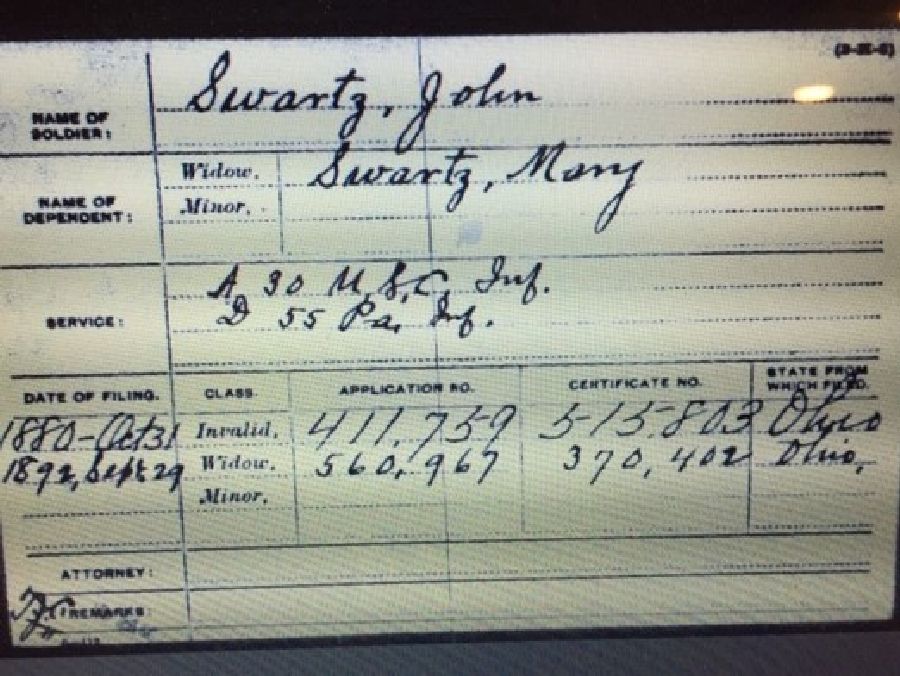 (3-21-5)
NAME OF SOLDIER: Swartz, John
NAME OF DEPENDENT: Widow. Swartz, Mary
Minor.
SERVICE: A 30 U.S.C. Inf.
D 55 Pa. Inf.
DATE OF FILING. CLASS. APPLICATION NO. CERTIFICATE NO. STATE FROM WHICH FILED.
1880-Oct 31 Invalid, 411,759 515,803 Ohio
1892, Sept 29 Widow, 560,967 370,402 Ohio,
Minor,
ATTORNEY:
REMARKS